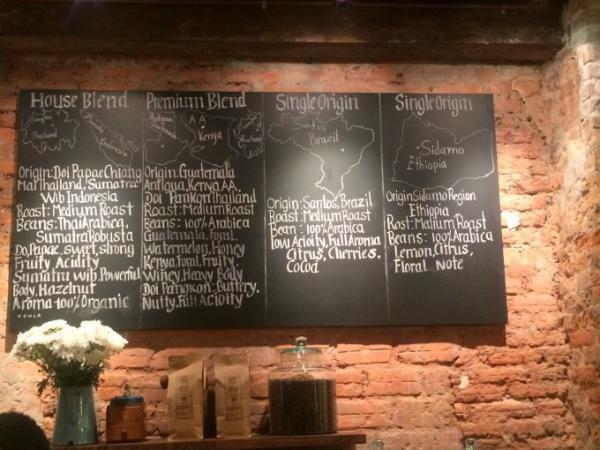 House Blend
Thailand
Indonesia
Origin:Doi Papae Chiang
Mai Thailand, Sumatra
Wib Indonesia
Roast: Medium Roast
Beans: Thai Arabica,
Sumatra Robusta
Do,Papae, swirl, strong
Fruity Acidity
Sumatra wib, Powerful
Body, Hazelnut
Aroma-100% Organic
Premium Blend
AA
Kenya
Origin:Guatemala
Antigua, Kenya AA,
Doi Pankon Thailand
Roast: Medium Roast
Beans: 100% Arabica
Guatemala, Foral,
Watermelon, Honey
Kenya, Foral, Fruity,
Winey, Heavy Body
Doi Pangkon: Buttery,
Nutty, Full Acidity
Single Origin
Santos
Brazil
Origin: Santos, Brazil
Roast: Medium Roast
Bean: 100% Arabica
low Acioty, Full Aroma
Citrus, Cherries,
Cocoa
Single Origin
Sidamo
Ethiopia
Origin Sidamo Region
Ethiopia
Rost: Medium Roast
Beans: 100% Arabica
Lemon, Citrus,
Floral Note